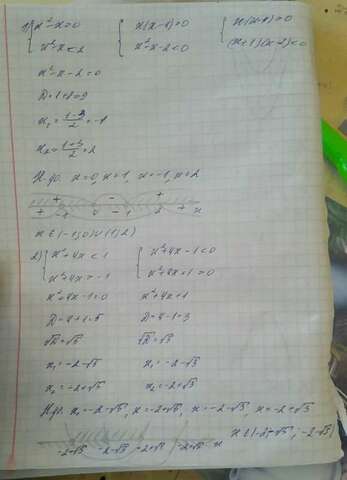 1) { x²-x>0 { x(x-1)>0 { x(x-1)>0
x²-x<2 x²-x-2<0 (x+1)(x-2)<0
x²-x-2=0
D=1+8=9
x₁=(1-3)/2=-1
x₂=(1+3)/2=2
Н.ф. x=0, x=1, x=-1, x=2
+ - +
+ -1 0 - 1 2 + x
x∈(-1;0)∪(1;2)
2) { x²+4x<1 { x²+4x-1<0
x²+4x>-1 x²+4x+1>0
x²+4x-1=0 x²+4x+1
D=4+1=5 D=4-1=3
√D=√5 √D=√3
x₁=-2-√5 x₁=-2-√3
x₂=-2+√5 x₂=-2+√3
Н.ф. x₁=-2-√5, x=-2+√5, x=-2-√3, x=-2+√3
x∈(-2-√5; -2-√3)
-2-√5 -2-√3 -2+√3 -2+√5 x